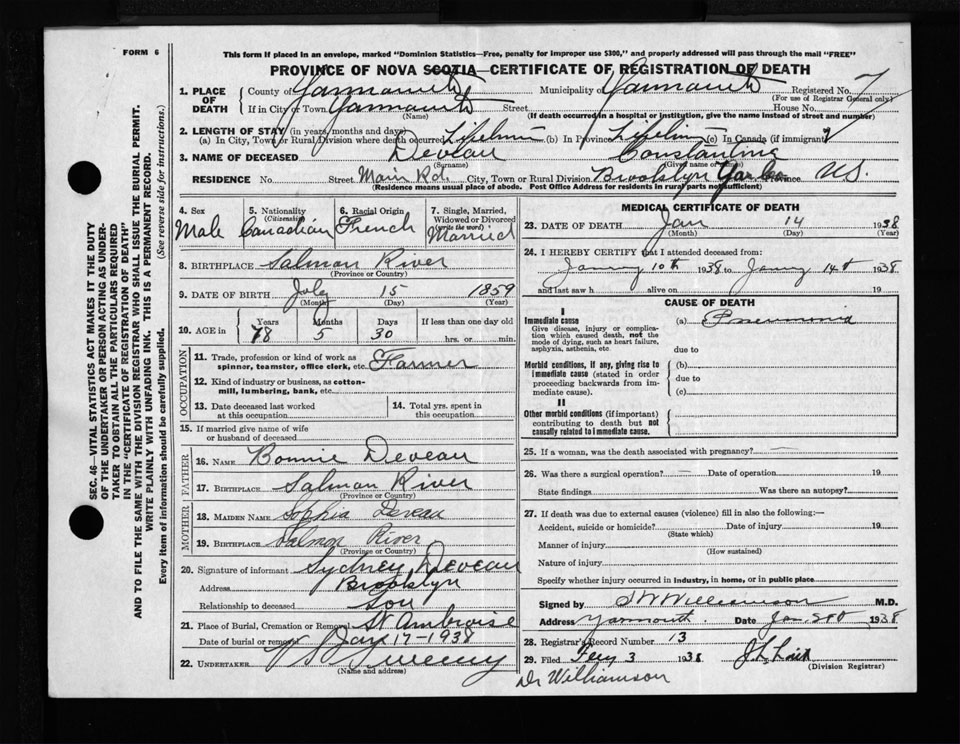 FORM 6
This form if placed in an envelope, marked "Dominion Statistics—Free, penalty for improper use $300," and properly addressed will pass through the mail "FREE"
PROVINCE OF NOVA SCOTIA—CERTIFICATE OF REGISTRATION OF DEATH
1. PLACE OF DEATH County of Yarmouth Municipality of Yarmouth Registered No. 7
(For use of Registrar General only)
If in City or Town Yarmouth Street House No.
(Name) (If death occurred in a hospital or institution, give the name instead of street and number)
2. LENGTH OF STAY (in years, months and days)
(a) In City, Town or Rural Division where death occurred Lifetime (b) In Province Lifetime (c) In Canada (if immigrant)
3. NAME OF DECEASED Deveau Constantine
(Surname) (Given name or names)
RESIDENCE No. Street Main Rd. City, Town or Rural Division Brooklyn Yar Co Province NS.
(Residence means usual place of abode. Post Office Address for residents in rural parts not sufficient)
4. Sex Male
5. Nationality (Citizenship) Canadian
6. Racial Origin French
7. Single, Married, Widowed or Divorced (write the word) Married
8. BIRTHPLACE Salmon River
(Province or Country)
9. DATE OF BIRTH July 15 1859
(Month) (Day) (Year)
10. AGE in Years Months Days If less than one day old
78 5 30 hrs. or min.
OCCUPATION
11. Trade, profession or kind of work as spinner, teamster, office clerk, etc. Farmer
12. Kind of industry or business, as cotton-mill, lumbering, bank, etc.
13. Date deceased last worked at this occupation
14. Total yrs. spent in this occupation
15. If married give name of wife or husband of deceased
FATHER
16. NAME Bonnie Deveau
17. BIRTHPLACE Salmon River
(Province or Country)
MOTHER
18. MAIDEN NAME Sophia Deveau
19. BIRTHPLACE Salmon River
(Province or Country)
20. Signature of informant Sydney Deveau
Address Brooklyn
Relationship to deceased Son
21. Place of Burial, Cremation or Removal St Ambroise
Date of burial or removal Jan 17-1938
22. UNDERTAKER Sweeny
(Name and address)
MEDICAL CERTIFICATE OF DEATH
23. DATE OF DEATH Jan 14 1938
(Month) (Day) (Year)
24. I HEREBY CERTIFY that I attended deceased from:
10th 1938 to 14th 1938
and last saw h alive on 19
CAUSE OF DEATH
I
Immediate cause (a) Pneumonia
Give disease, injury or complication which caused death, not the mode of dying, such as heart failure, asphyxia, asthenia, etc.
due to
Morbid conditions, if any, giving rise to immediate cause (stated in order proceeding backwards from immediate cause).
(b)
due to
(c)
II
Other morbid conditions (if important) contributing to death but not causally related to immediate cause.
25. If a woman, was the death associated with pregnancy?
26. Was there a surgical operation? Date of operation 19
State findings Was there an autopsy?
27. If death was due to external causes (violence) fill in also the following:—
Accident, suicide or homicide? Date of injury 19
(State which)
Manner of injury
(How sustained)
Nature of injury
Specify whether injury occurred in industry, in home, or in public place
Signed by Williamson M.D.
Address Yarmouth Date Jan 1938
28. Registrar's Record Number 13
29. Filed 3 1938
(Division Registrar)
Dr Williamson
SEC. 46—VITAL STATISTICS ACT MAKES IT THE DUTY
OF THE UNDERTAKER OR PERSON ACTING AS UNDER-
TAKER TO OBTAIN ALL THE PARTICULARS REQUIRED
IN THE "CERTIFICATE OF REGISTRATION OF DEATH"
AND TO FILE THE SAME WITH THE DIVISION REGISTRAR WHO SHALL ISSUE THE BURIAL PERMIT.
WRITE PLAINLY WITH UNFADING INK. THIS IS A PERMANENT RECORD.
Every item of information should be carefully supplied. (See reverse side for instructions.)